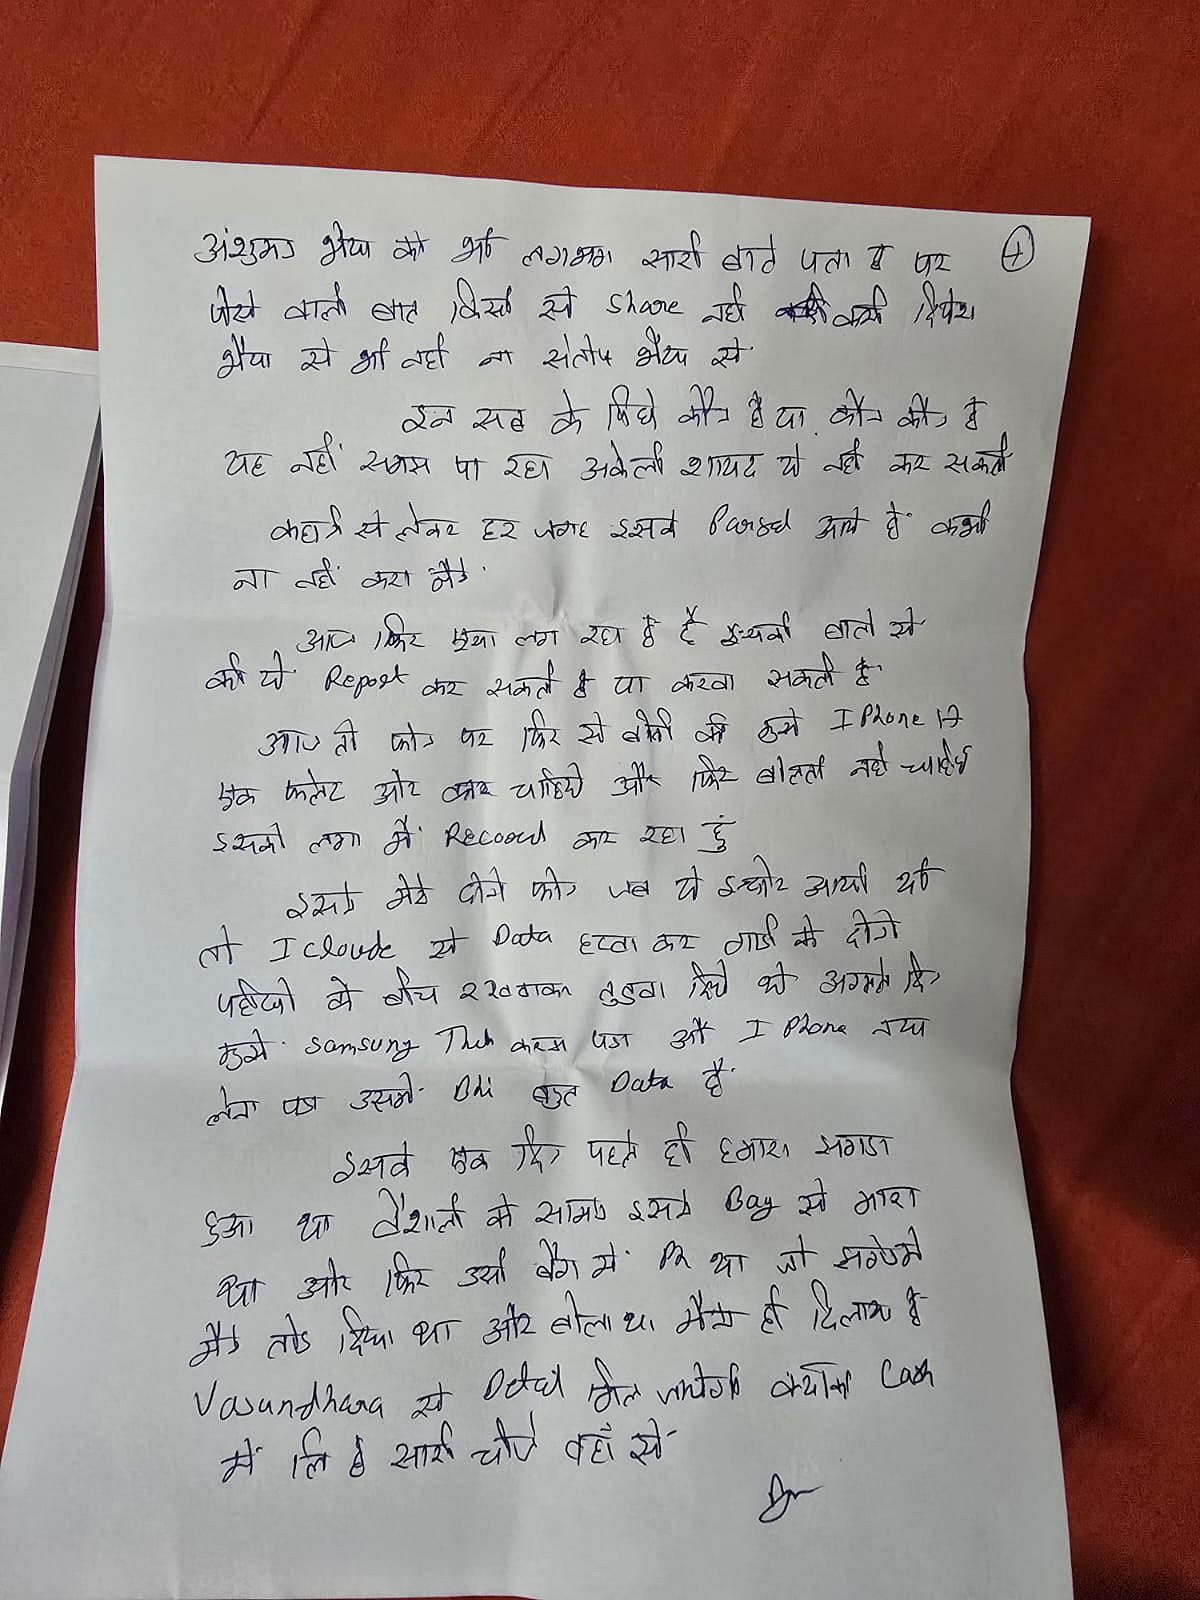 अंशुमन भैया को भी लगभग सारी बातें पता है पर
पैसे वाली बात किसी से share नहीं करी दिपेश
भैया से भी नहीं ना संतोष भैया से
इन सब के पिछे कौन है या कौन कौन है
यह नहीं समझ पा रहा अकेली शायद ये नहीं कर सकती
से लेकर हर जगह इसके आये है कभी
ना नहीं करा मैने
आज फिर एसा लग रहा है बातो से
की ये Report कर सकती है या करवा सकती है
आज तो फोन पर फिर से बोली की मुझे I Phone 17
एक फ्लेट और कार चाहिये और फिर बोलती नहीं चाहिये
इसको लगा मैं Record कर रहा हुं
इसने मेरे दोनो फोन जब ये इन्दौर आयी थी
तो I Cloude से Data हटवा कर गाडी के दोनो
पहीयो के बीच रखवाकर तुडवा दिये थे अगले दिन
मुझे Samsung लेना पडा और I Phone नया
लेना पडा उसमें Bhi बहुत Data है
इसके एक दिन पहले ही हमारा झगडा
हुआ था वैशाली के सामने इसने Bag से मारा
था और फिर उसी बैग में था जो झगडे में
मैने तोड दिया था और बोला था मैने ही दिलाया है
Vasundhara से Detail मिल जायेगी क्योंकी Cash
में लि है सारी चीजे वहाँ से